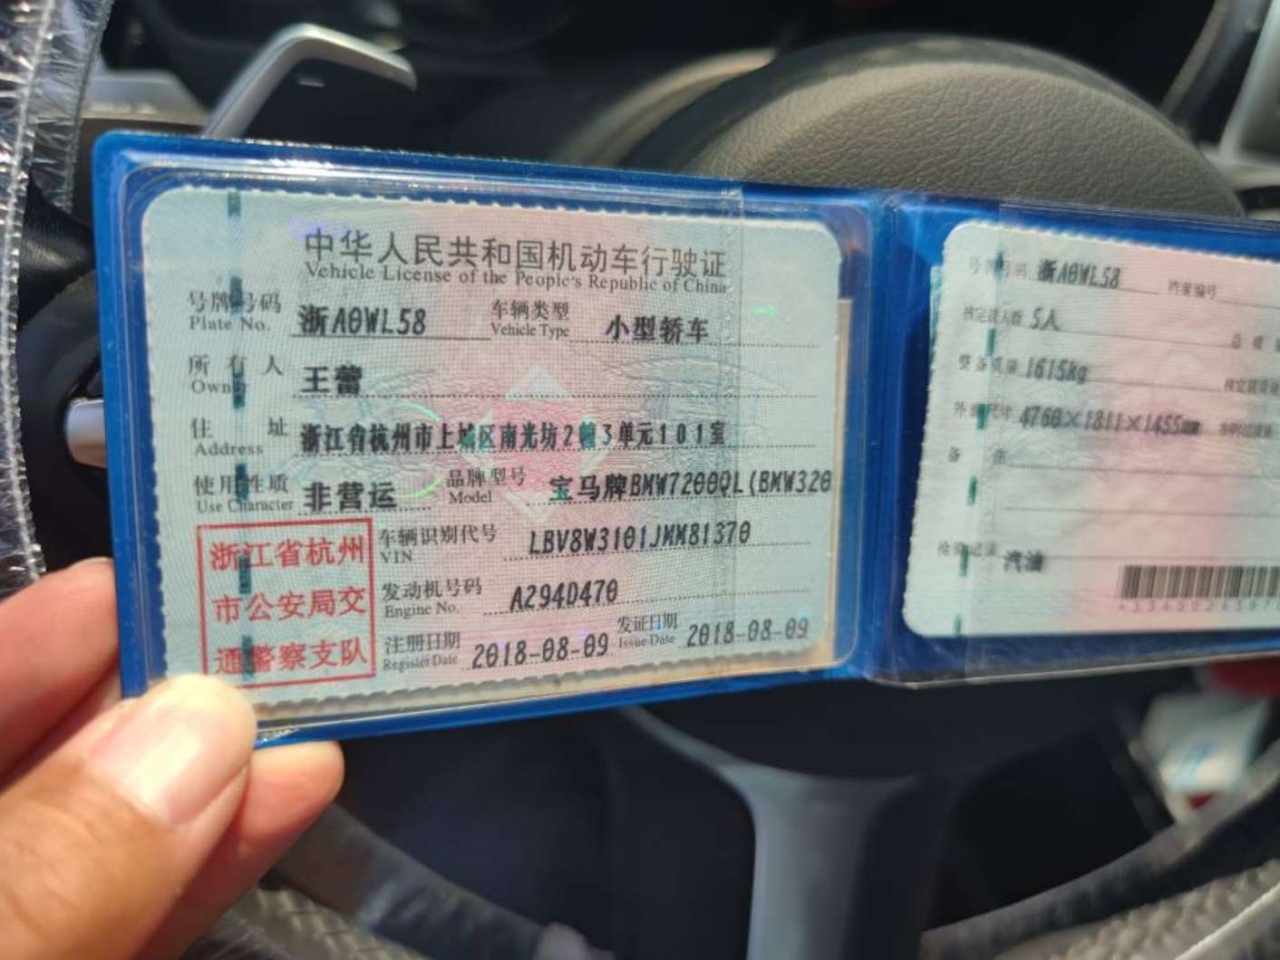 中华人民共和国机动车行驶证
Vehicle License of the People's Republic of China
号牌号码 浙A0WL58 车辆类型 小型轿车
Plate No. Vehicle Type
所有人 王蕾
Owner
住址 浙江省杭州市上城区南光坊2幢3单元101室
Address
使用性质 非营运 品牌型号 宝马牌BMW7200QL(BMW320
Use Character Model
浙江省杭州
市公安局交
通警察支队
车辆识别代号 LBV8W3101JMM81370
VIN
发动机号码 A294D470
Engine No.
注册日期 2018-08-09 发证日期 2018-08-09
Register Date Issue Date
号牌号码 浙A0WL58 档案编号
核定载人数 5人
整备质量 1615kg
外廓尺寸 4760×1811×1455mm
备注
检验记录 汽油